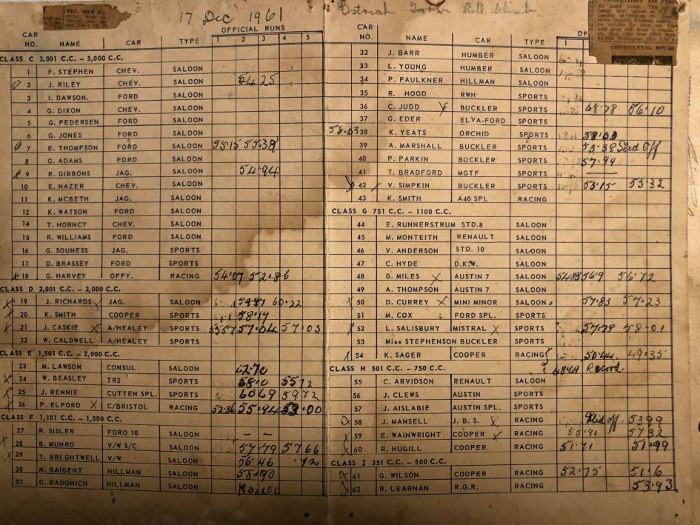 17 Dec 1961
OFFICIAL RUNS
CAR NO. NAME CAR TYPE 1 2 3 4 5
CLASS C 3,001 C.C. – 5,000 C.C.
1 F. STEPHEN CHEV. SALOON
2 J. RILEY CHEV. SALOON 54.25
3 I. DAWSON. FORD SALOON
4 G. DIXON CHEV. SALOON
5 G. PEDERSEN FORD SALOON
6 G. JONES FORD SALOON
7 E. THOMPSON FORD SALOON 55.15 55.38
8 G. ADAMS FORD SALOON
9 R. GIBBONS JAG. SALOON 54.94
10 E. NAZER CHEV. SALOON
11 K. McBETH JAG. SALOON
12 K. WATSON FORD SALOON
14 T. HORNCY CHEV. SALOON
15 R. WILLIAMS FORD SALOON
16 G. SOUNESS JAG. SPORTS
17 D. BRASSEY FORD SPORTS
18 G. HARVEY OFFY. RACING 54.07 52.86
CLASS D 2,001 C.C. – 3,000 C.C.
19 J. RICHARDS JAG. SALOON 60.22
20 K. SMITH COOPER SPORTS 58.19
21 J. CASKIE A/HEALEY SPORTS 57.04 57.03
22 W. CALDWELL A/HEALEY SPORTS
CLASS E 1,501 C.C. – 2,000 C.C.
23 M. LAWSON CONSUL SALOON 62.70
24 W. BEASLEY TR2 SPORTS 58.0 55.12
25 J. RENNIE CUTTEN SPL. SPORTS 60.69 59.72
26 P. ELFORD C/BRISTOL RACING 52.36 55.94 53.00
CLASS F 1,101 C.C. – 1,500 C.C.
27 R. SISLER FORD 10 SALOON – –
28 B. MUNRO V/W S/C SALOON 57.79 57.66
29 T. BRIGHTWELL V/W SALOON 56.46
30 M. BAIGENT HILLMAN SALOON 58.90
31 D. RADONICH HILLMAN SALOON ROLLED
CAR NO. NAME CAR TYPE
32 J. BARR HUMBER SALOON
33 L. YOUNG HUMBER SALOON
34 P. FAULKNER HILLMAN SALOON
35 R. HOOD RWH SPORTS
36 C. JUDD BUCKLER SPORTS 68.78 56.10
37 G. EDER ELVA-FORD SPORTS
58.03 38 K. YEATS ORCHID SPORTS 58.03
39 A. MARSHALL BUCKLER SPORTS 55.38 Slid Off
40 P. PARKIN BUCKLER SPORTS 57.99
41 T. BRADFORD MGTF SPORTS
42 V. SIMPKIN BUCKLER SPORTS 53.15 53.32
43 K. SMITH A40 SPL RACING
CLASS G 751 C.C. – 1100 C.C.
44 E. RUNNERSTRUM STD.8 SALOON
45 M. MONTEITH RENAULT SALOON
46 V. ANDERSON STD. 10 SALOON
47 C. HYDE D.K.W. SALOON
48 G. MILES AUSTIN 7 SALOON 56.72
49 A. THOMPSON AUSTIN 7 SALOON
50 D. CURREY MINI MINOR SALOON 57.83 57.23
51 M. COX FORD SPL. SPORTS
52 L. SALISBURY MISTRAL SPORTS 57.78 58.01
53 Miss STEPHENSON BUCKLER SPORTS
54 K. SAGER COOPER RACING 50.44 49.35
CLASS H 501 C.C. – 750 C.C. 48.49 Record
55 C. ARVIDSON RENAULT SALOON
56 J. CLEWS AUSTIN SPORTS
57 J. AISLABIE AUSTIN SPL. SPORTS
58 J. MANSELL J. B. S. RACING Slid off 53.99
59 E. WAINWRIGHT COOPER RACING 55.90 57.32
60 R. HUGILL COOPER RACING 51.71 51.99
CLASS I 351 C.C. – 500 C.C.
61 G. WILSON COOPER RACING 52.75 51.6
62 R. LEARNAN R.G.R. RACING 53.93